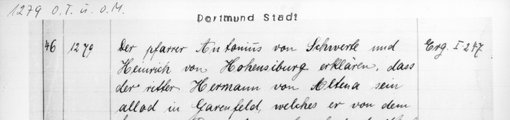 1279 O.T. u. O.M.
Dortmund Stadt
46 1279 Der pfarrer Antonius von Schwerte und Erg. I 247.
Heinrich von Hohensiburg erklären, dass
der ritter Hermann von Altena sein
allod in Garenfeld, welches er von dem